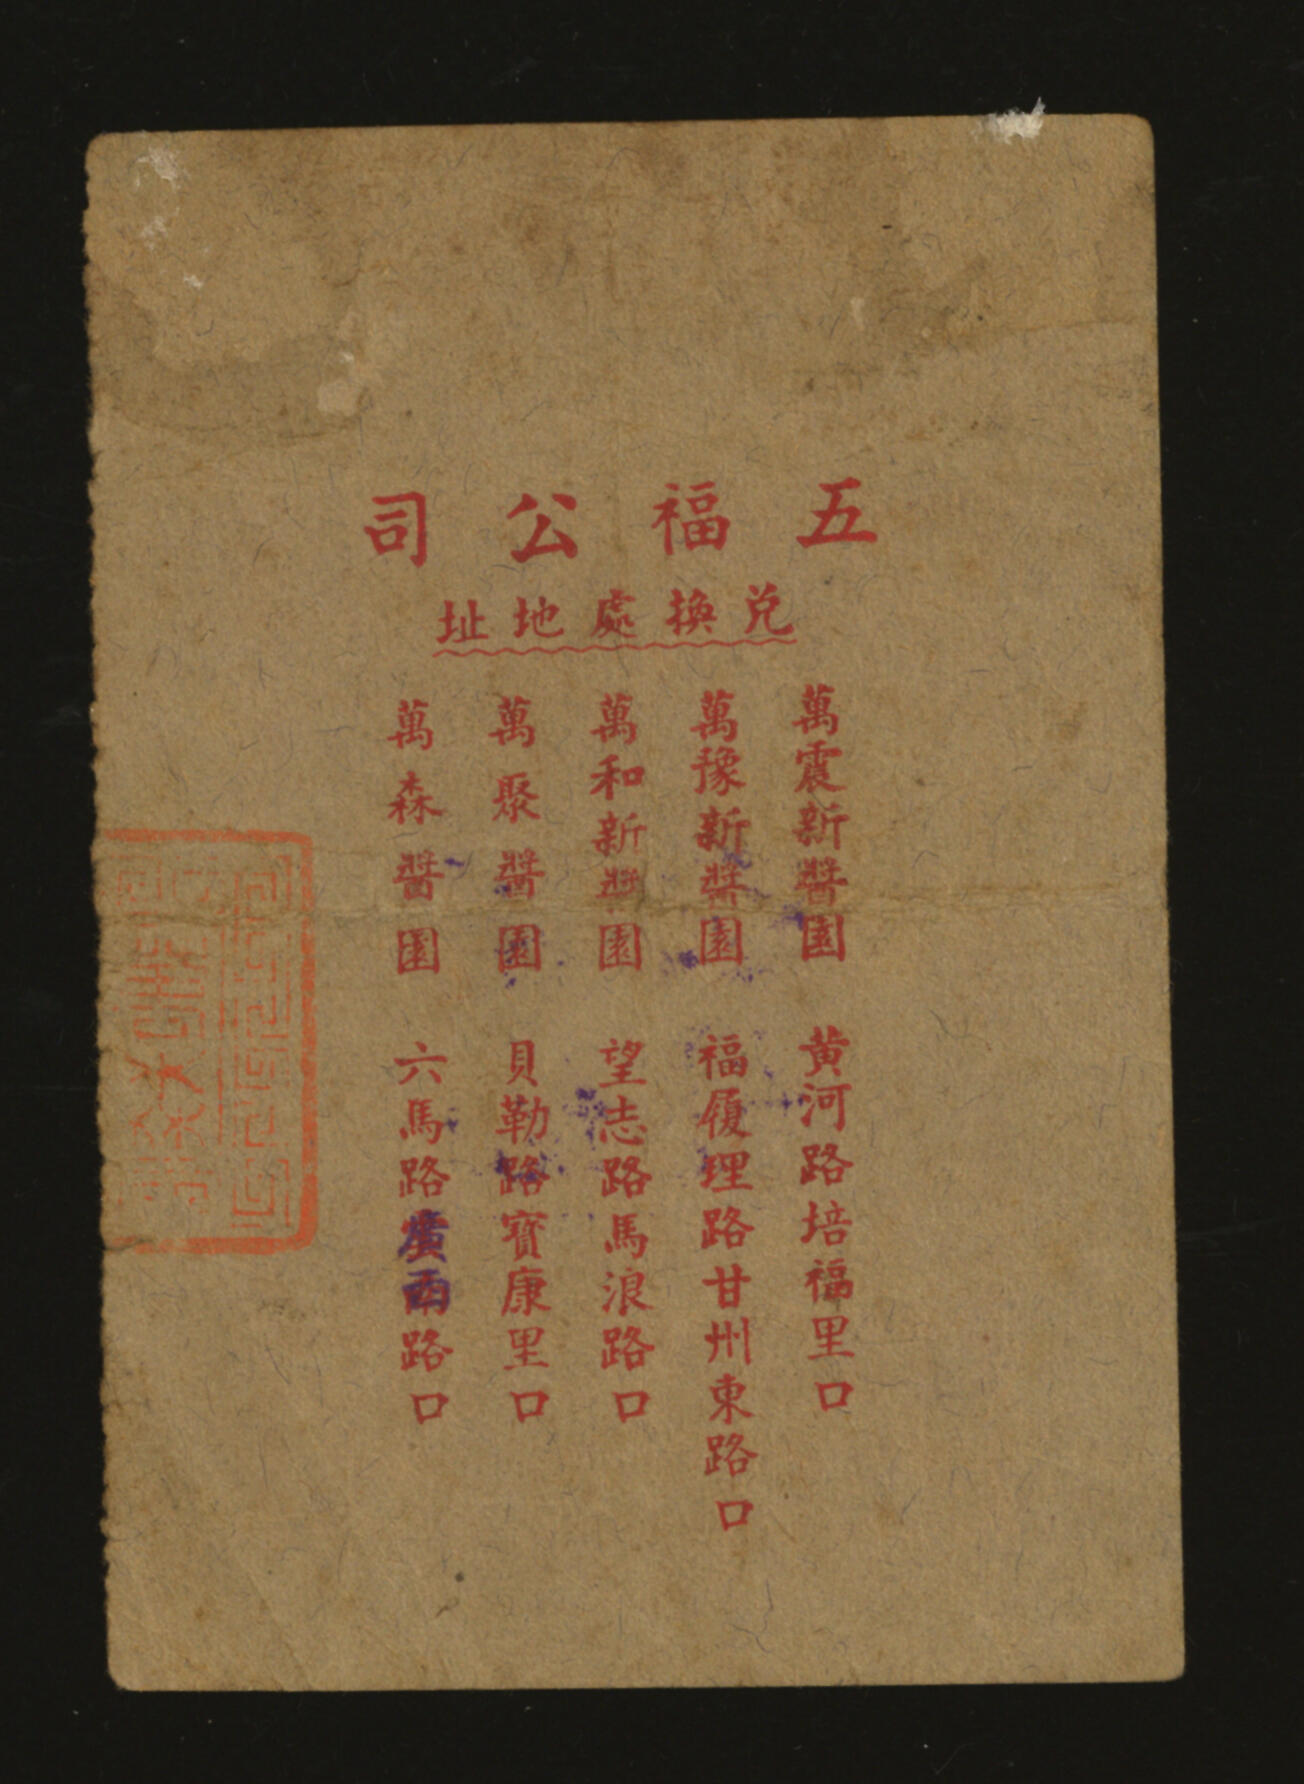 五福公司
兌換處地址
萬震新醬園 黃河路培福里口
萬豫新醬園 福履理路甘州東路口
萬和新醬園 望志路馬浪路口
萬聚醬園 貝勒路寶康里口
萬森醬園 六馬路廣西路口